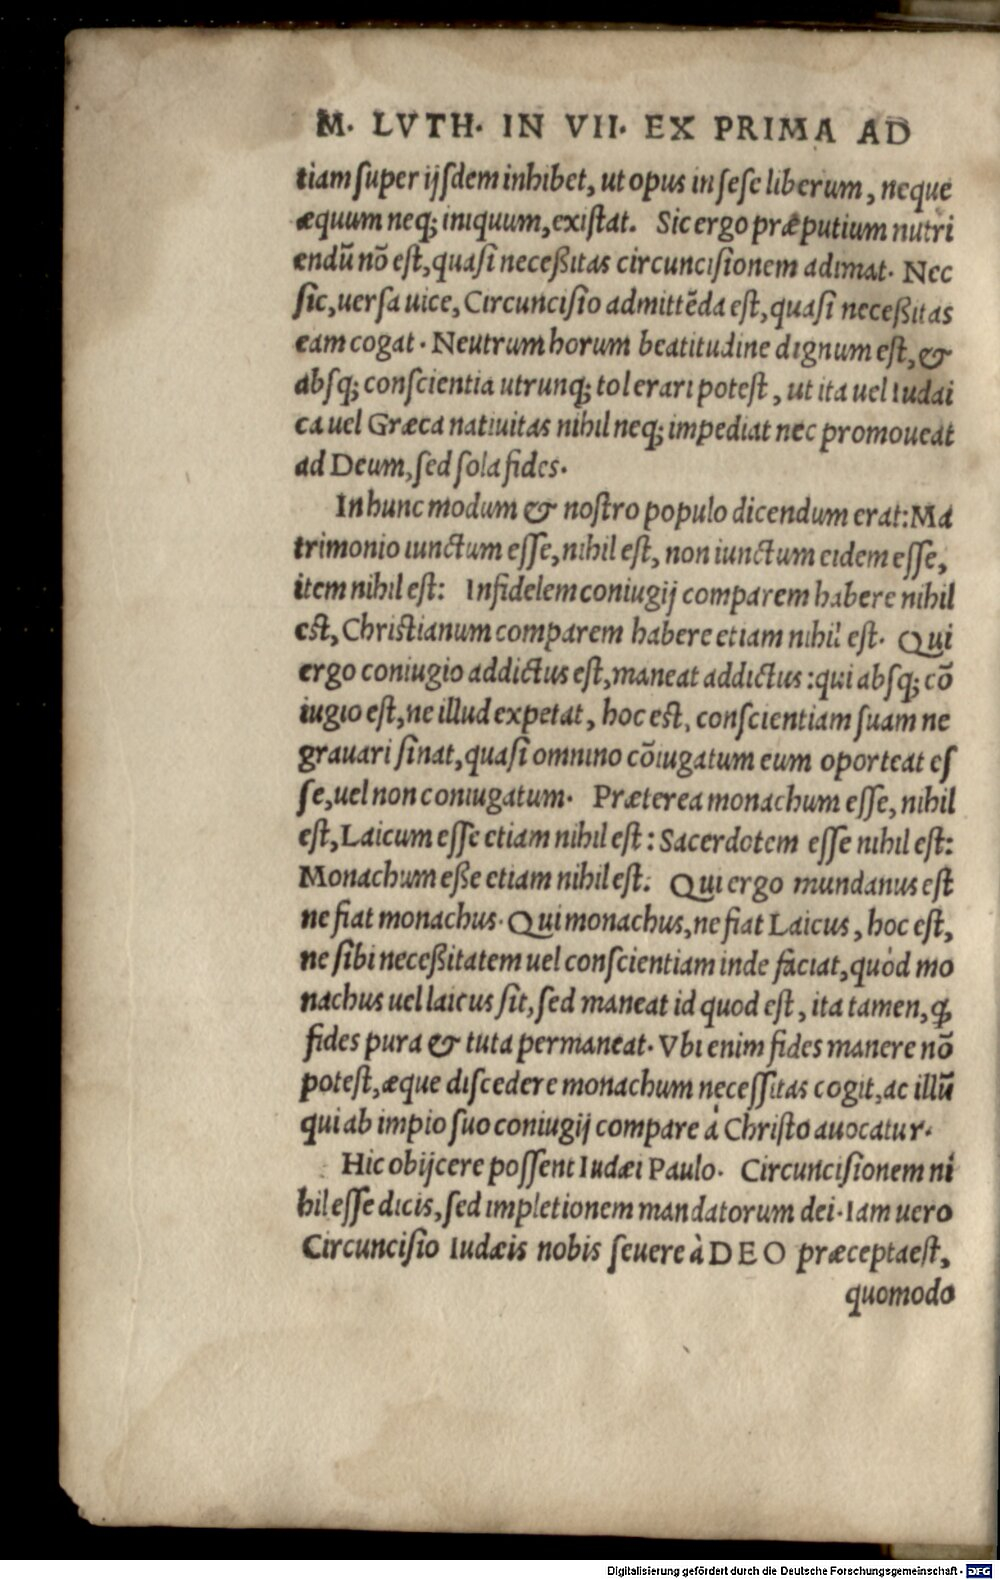 M. LVTH. IN VII. EX PRIMA AD
tiam ſuper ijſdem inhibet, ut opus in ſeſe liberum, neque
æquum neq; iniquum, exiſtat. Sic ergo præputium nutri
endū nō eſt, quaſi neceßitas circunciſionem adimat. Nec
ſic, uerſa uice, Circunciſio admittēda eſt, quaſi neceßitas
eam cogat. Neutrum horum beatitudine dignum eſt, &
abſq; conſcientia utrunq; tolerari poteſt, ut ita uel Iudai
ca uel Græca natiuitas nihil neq; impediat nec promoueat
ad Deum, ſed ſola fides.
In hunc modum & noſtro populo dicendum erat: Ma
trimonio iunctum eſſe, nihil eſt, non iunctum eidem eſſe,
item nihil eſt: Infidelem coniugij comparem habere nihil
eſt, Chriſtianum comparem habere etiam nihil eſt. Qui
ergo coniugio addictus eſt, maneat addictus: qui abſq; cō
iugio eſt, ne illud expetat, hoc eſt, conſcientiam ſuam ne
grauari ſinat, quaſi omnino cōiugatum eum oporteat eſ
ſe, uel non coniugatum. Præterea monachum eſſe, nihil
eſt, Laicum eſſe etiam nihil eſt: Sacerdotem eſſe nihil eſt:
Monachum eße etiam nihil eſt. Qui ergo mundanus eſt
ne fiat monachus. Qui monachus, ne fiat Laicus, hoc eſt,
ne ſibi neceßitatem uel conſcientiam inde faciat, quòd mo
nachus uel laicus ſit, ſed maneat id quod eſt, ita tamen, ꝙ
fides pura & tuta permaneat. Vbi enim fides manere nō
poteſt, æque diſcedere monachum neceſſitas cogit, ac illū
qui ab impio ſuo coniugij compare à Chriſto auocatur.
Hic obijcere poſſent Iudæi Paulo. Circunciſionem ni
hil eſſe dicis, ſed impletionem mandatorum dei. Iam uero
Circunciſio Iudæis nobis ſeuere à DEO præcepta eſt,
quomodo
Digitalisierung gefördert durch die Deutsche Forschungsgemeinschaft - DFG